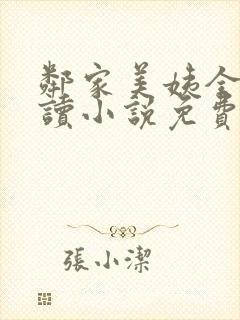 鄰家美姨全
讀小說免費
張小潔